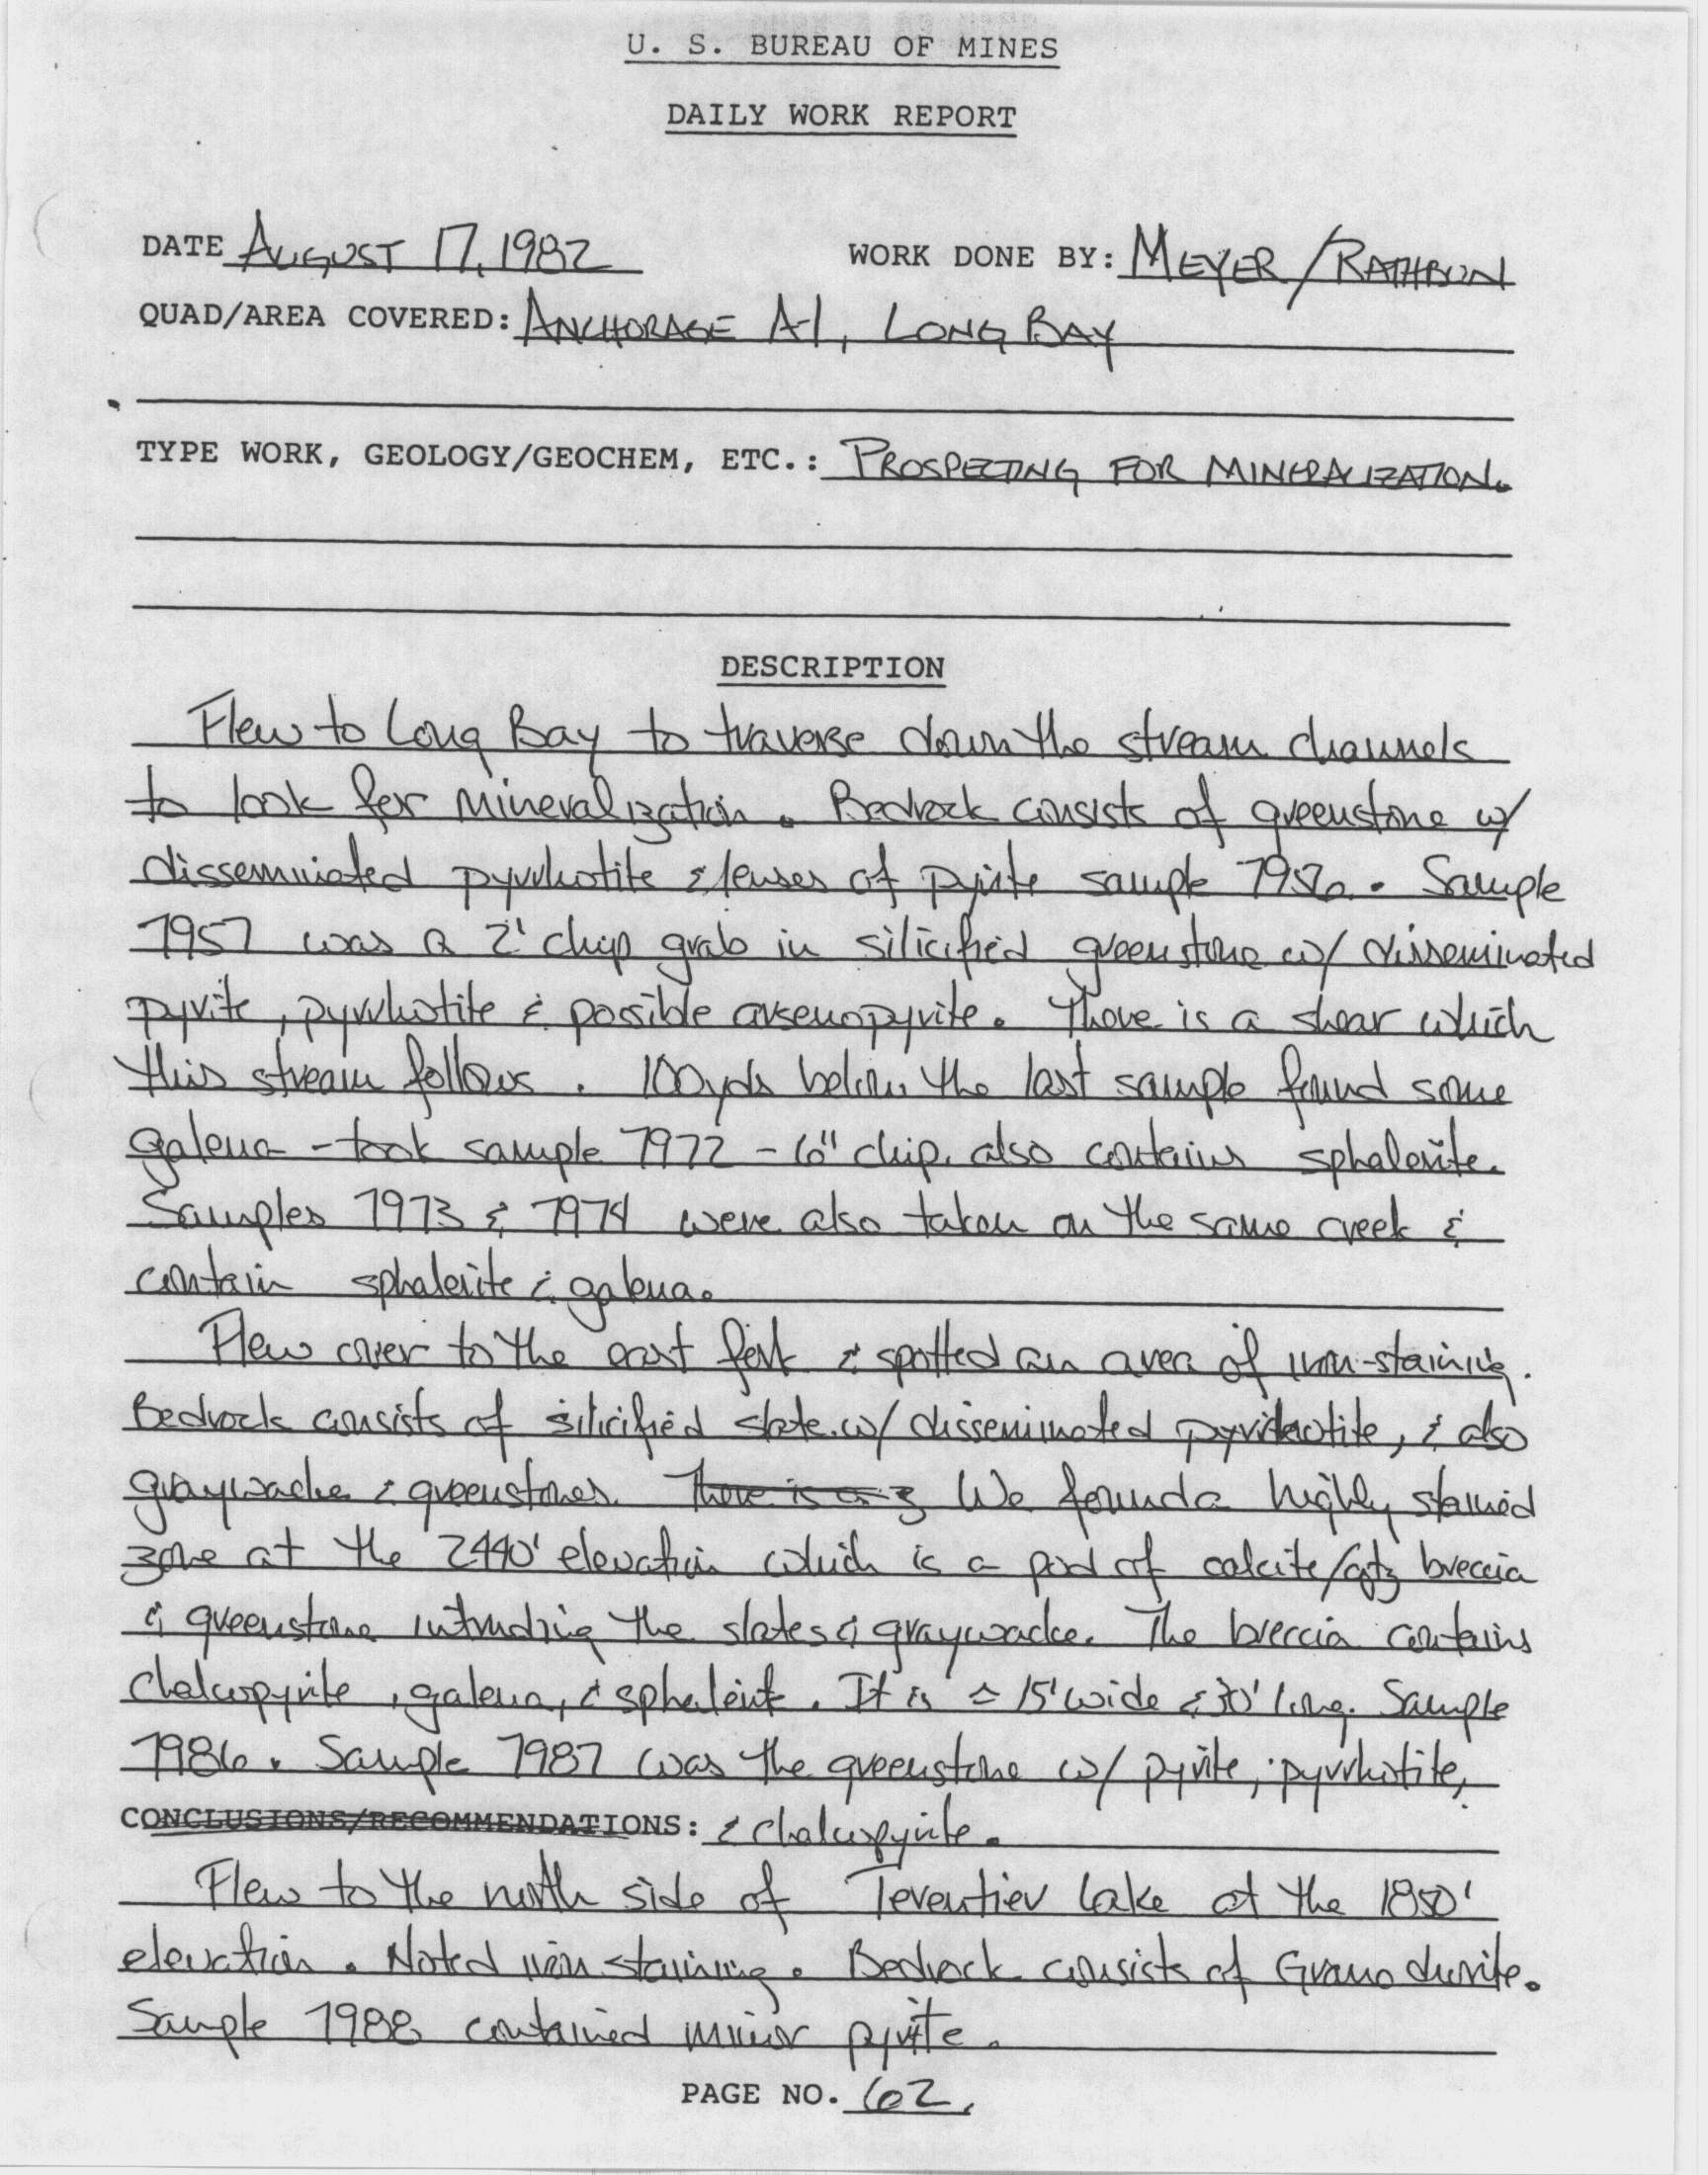 U. S. BUREAU OF MINES
DAILY WORK REPORT
DATE AUGUST 17, 1982 WORK DONE BY: MEYER/RATHBUN
QUAD/AREA COVERED: ANCHORAGE A-1, LONG BAY
TYPE WORK, GEOLOGY/GEOCHEM, ETC.: PROSPECTING FOR MINERALIZATION.
DESCRIPTION
Flew to Long Bay to traverse down the stream channels
to look for mineralization. Bedrock consists of greenstone w/
disseminated pyrrhotite & lenses of pyrite sample 7956. Sample
7957 was a 2' chip grab in silicified greenstone w/ disseminated
pyrite, pyrrhotite & possible arsenopyrite. There is a shear which
this stream follows. 100yds below the last sample found some
galena - took sample 7972 - 6" chip. also contains sphalerite.
Samples 7973 & 7974 were also taken on the same creek &
contain sphalerite & galena.
Flew over to the east fork & spotted an area of iron-staining.
Bedrock consists of silicified slate w/ disseminated pyrrhotite, & also
graywacke & greenstones. There is a z We found a highly stained
zone at the 2440' elevation which is a pod of calcite/qtz breccia
& greenstone intruding the slates & graywacke. The breccia contains
chalcopyrite, galena, & sphalerite. It is ≈ 15' wide & 30' long. Sample
7986. Sample 7987 was the greenstone w/ pyrite, pyrrhotite,
CONCLUSIONS/RECOMMENDATIONS: & chalcopyrite.
Flew to the north side of Terentiev Lake at the 1850'
elevation. Noted iron staining. Bedrock consists of Granodiorite.
Sample 7988 contained minor pyrite.
PAGE NO. 62.